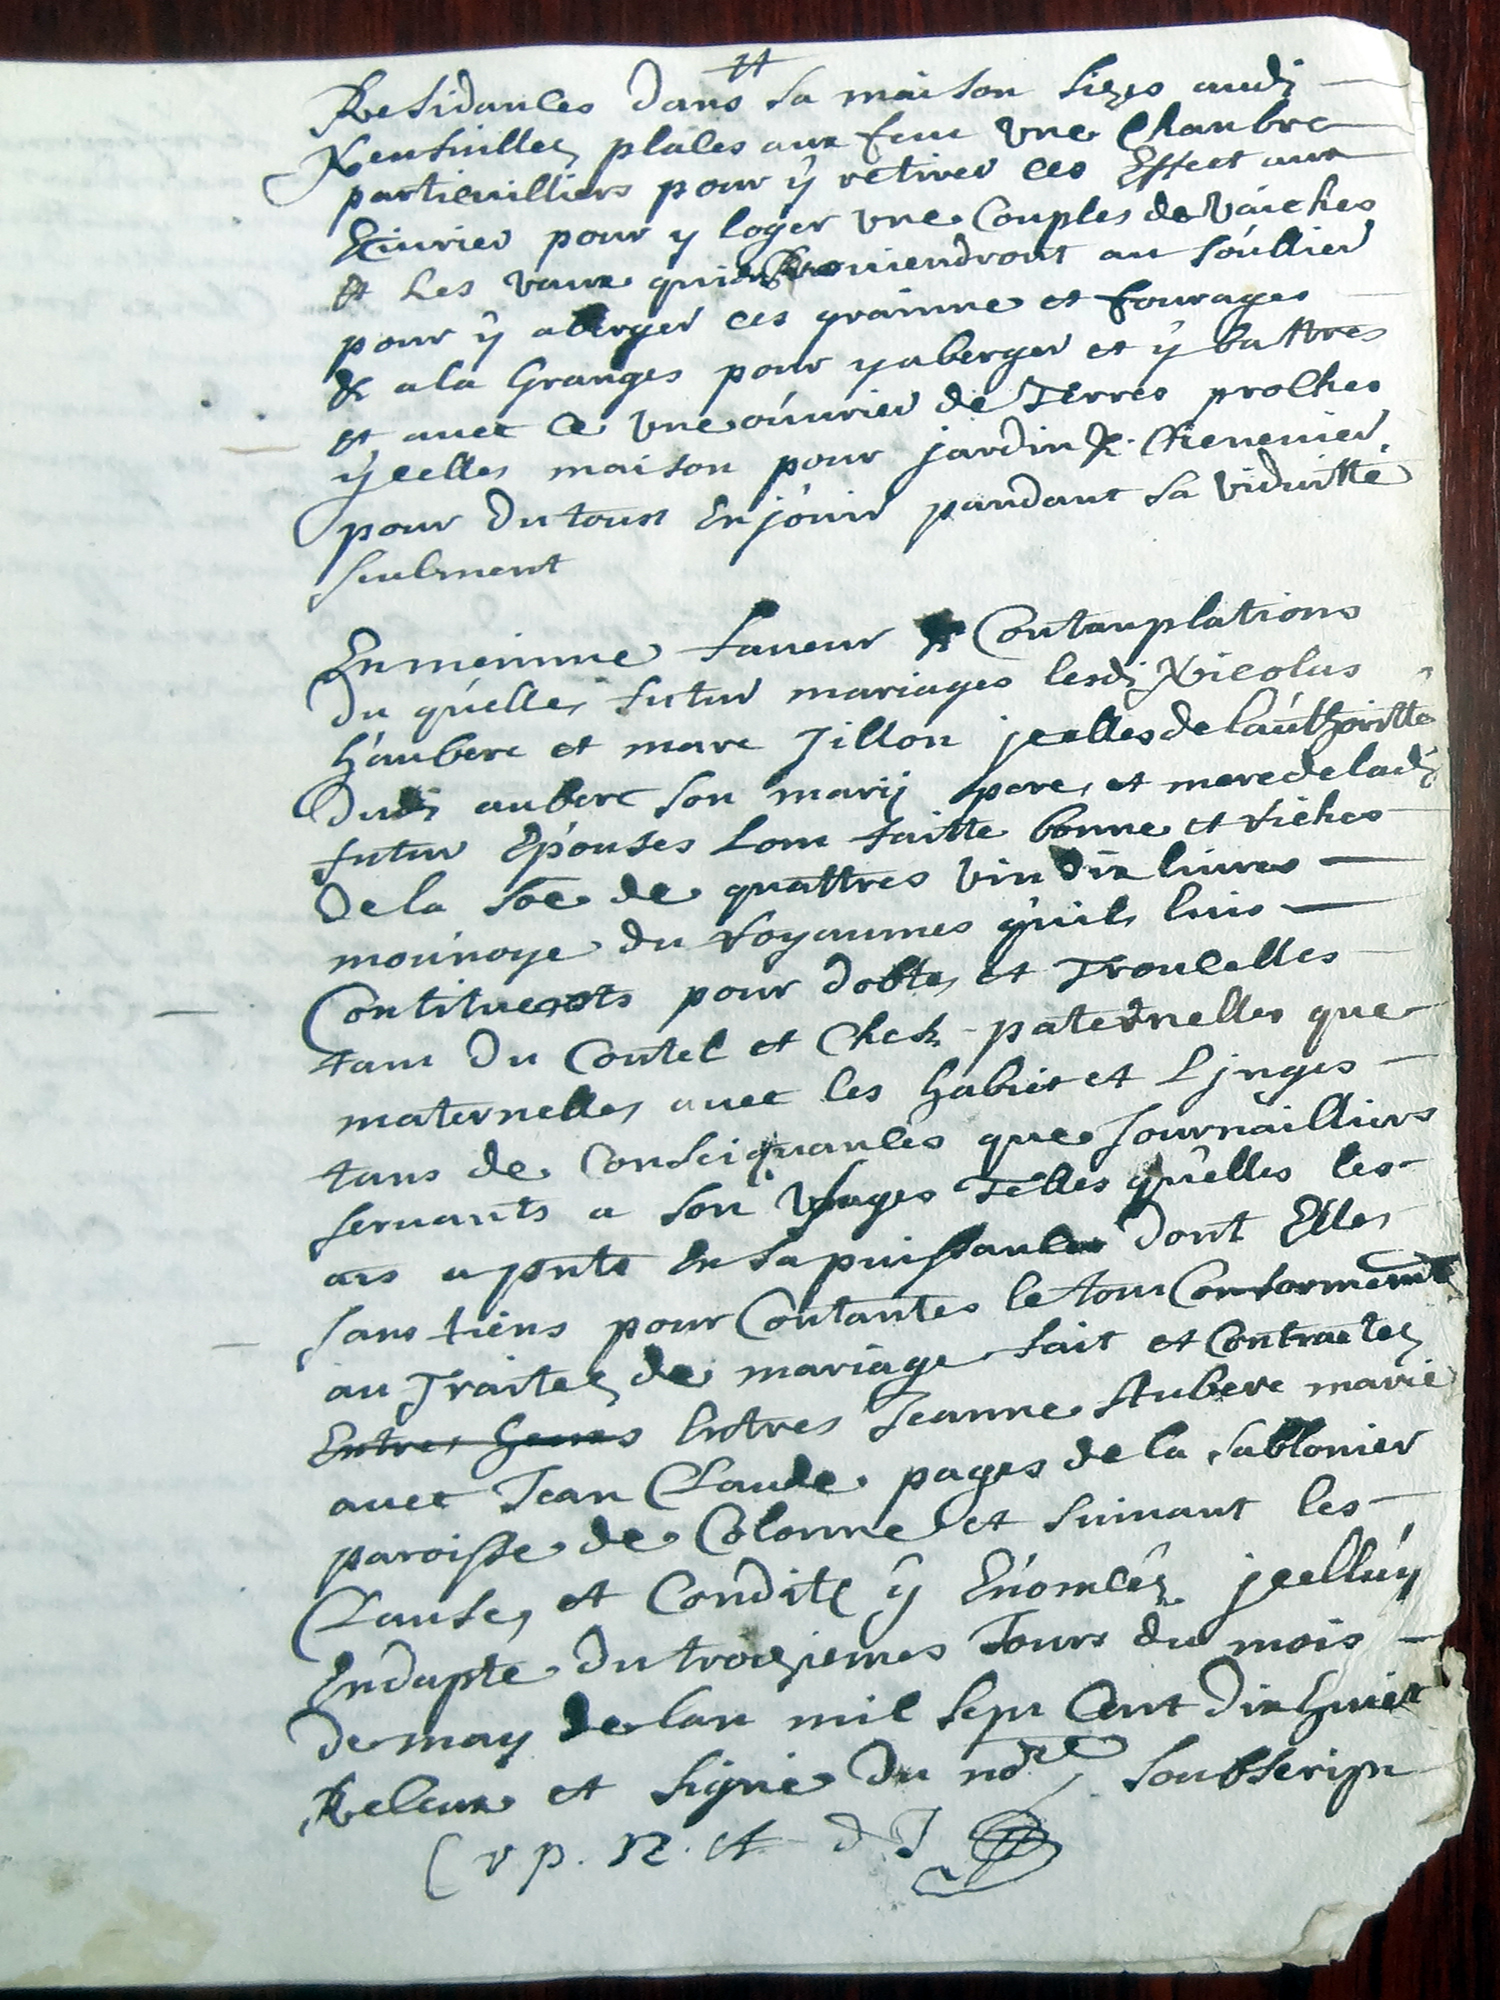 Residances dans sa maison sizes audi
Neufuilleÿ places aux feux une Chanbre
particuilliers pour ÿ retirer ces Effect aux
Ecurier pour y loger une Couples de Vaiches
et Les vaux qui proviendront au soullier
pour ÿ aberger ces grainne et fourages
& a la Granges pour y aberger et ÿ battres
et avec ce une ouvrier de Terres proches
ÿcelles maison pour jardin & Chenevier
pour du toust En jouir pandant sa viduitté
seulment
En meimme faveur & Contanplations
du quelle futur mariages lesdi Nicolas
haubere et marc Jillon jcelles de lauthoritté
Dudi aubere son marÿ pere et mere de ladi
futur Epouses Lom faitte bonne et riches
De la soe de quattres vin dix livres
monnoye du royaumes quil luis
Contituents pour dobte et Troucelles
tant du Coutel et Chef paternelles que
maternelles avec les habit et Linges
tans de Conseiquances que Journailliers
servants a son usages Telles quelles les
ars a pnts En sa puissances dont Elles
sans tiens pour Contantes le tout Conformement
au Traitez de mariage fait et Contractez
Entres Entres Jeanne Aubere marie
avec Jean Claude pages de la Sablonier
paroisse de Colonne et suivant les
Clause et Condite ÿ Enoncez jcelluÿ
En dapte du troizjemes Jours du mois
de may de lan mil sept Cent dix huict
Receux et signé du nore soubscript
v p. N. A d J